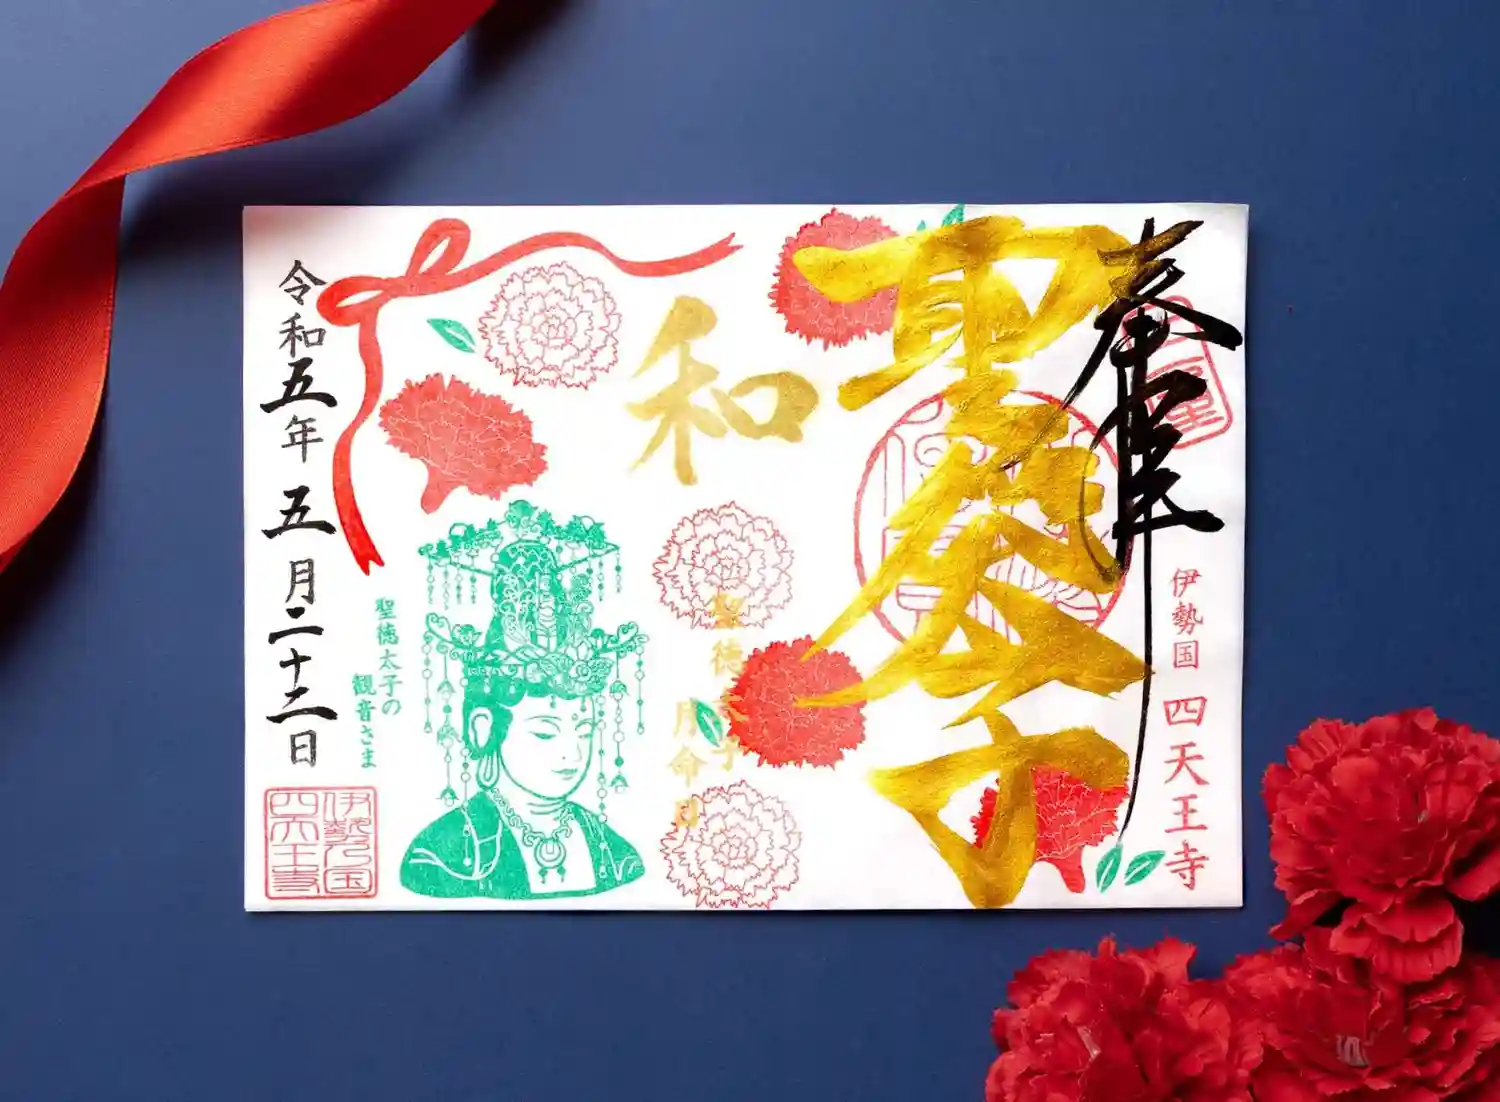 奉拝
伊勢国 四天王寺
聖太子
和
聖徳太子
月命日
聖徳太子の
観音さま
令和五年 五月二十二日
伊勢乃国
四天王寺